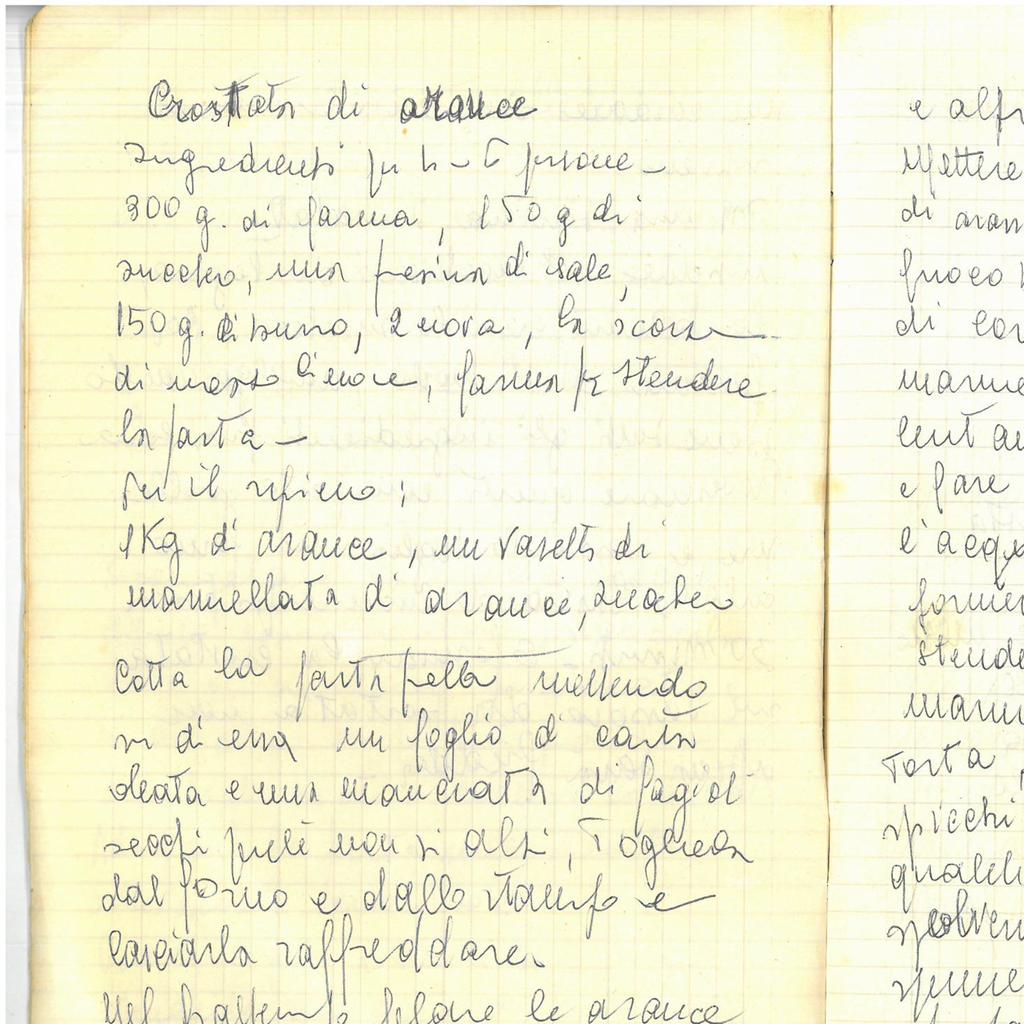 Crostata di arance
Ingredienti per 4-5 persone -
300 g. di farina, 150 g di
zucchero, una presina di sale,
150 g. di burro, 2 uova, la scorza
di mezzo limone, farina per stendere
la pasta -
Per il ripieno:
1 Kg di arance, un vasetto di
marmellata di arance, zucchero
Cotta la pasta frolla mettendo
su di essa un foglio di carta
oleata e una manciata di fagioli
secchi perchè non si alzi, toglierla
dal forno e dallo stampo e
lasciarla raffreddare.
Nel frattempo pelare le arance
e alfr
Mettere
di aran
fuoco
di
marme
lent
e fare
l'acqu
formi
stende
marm
torta
spicchi
qualch
spolver